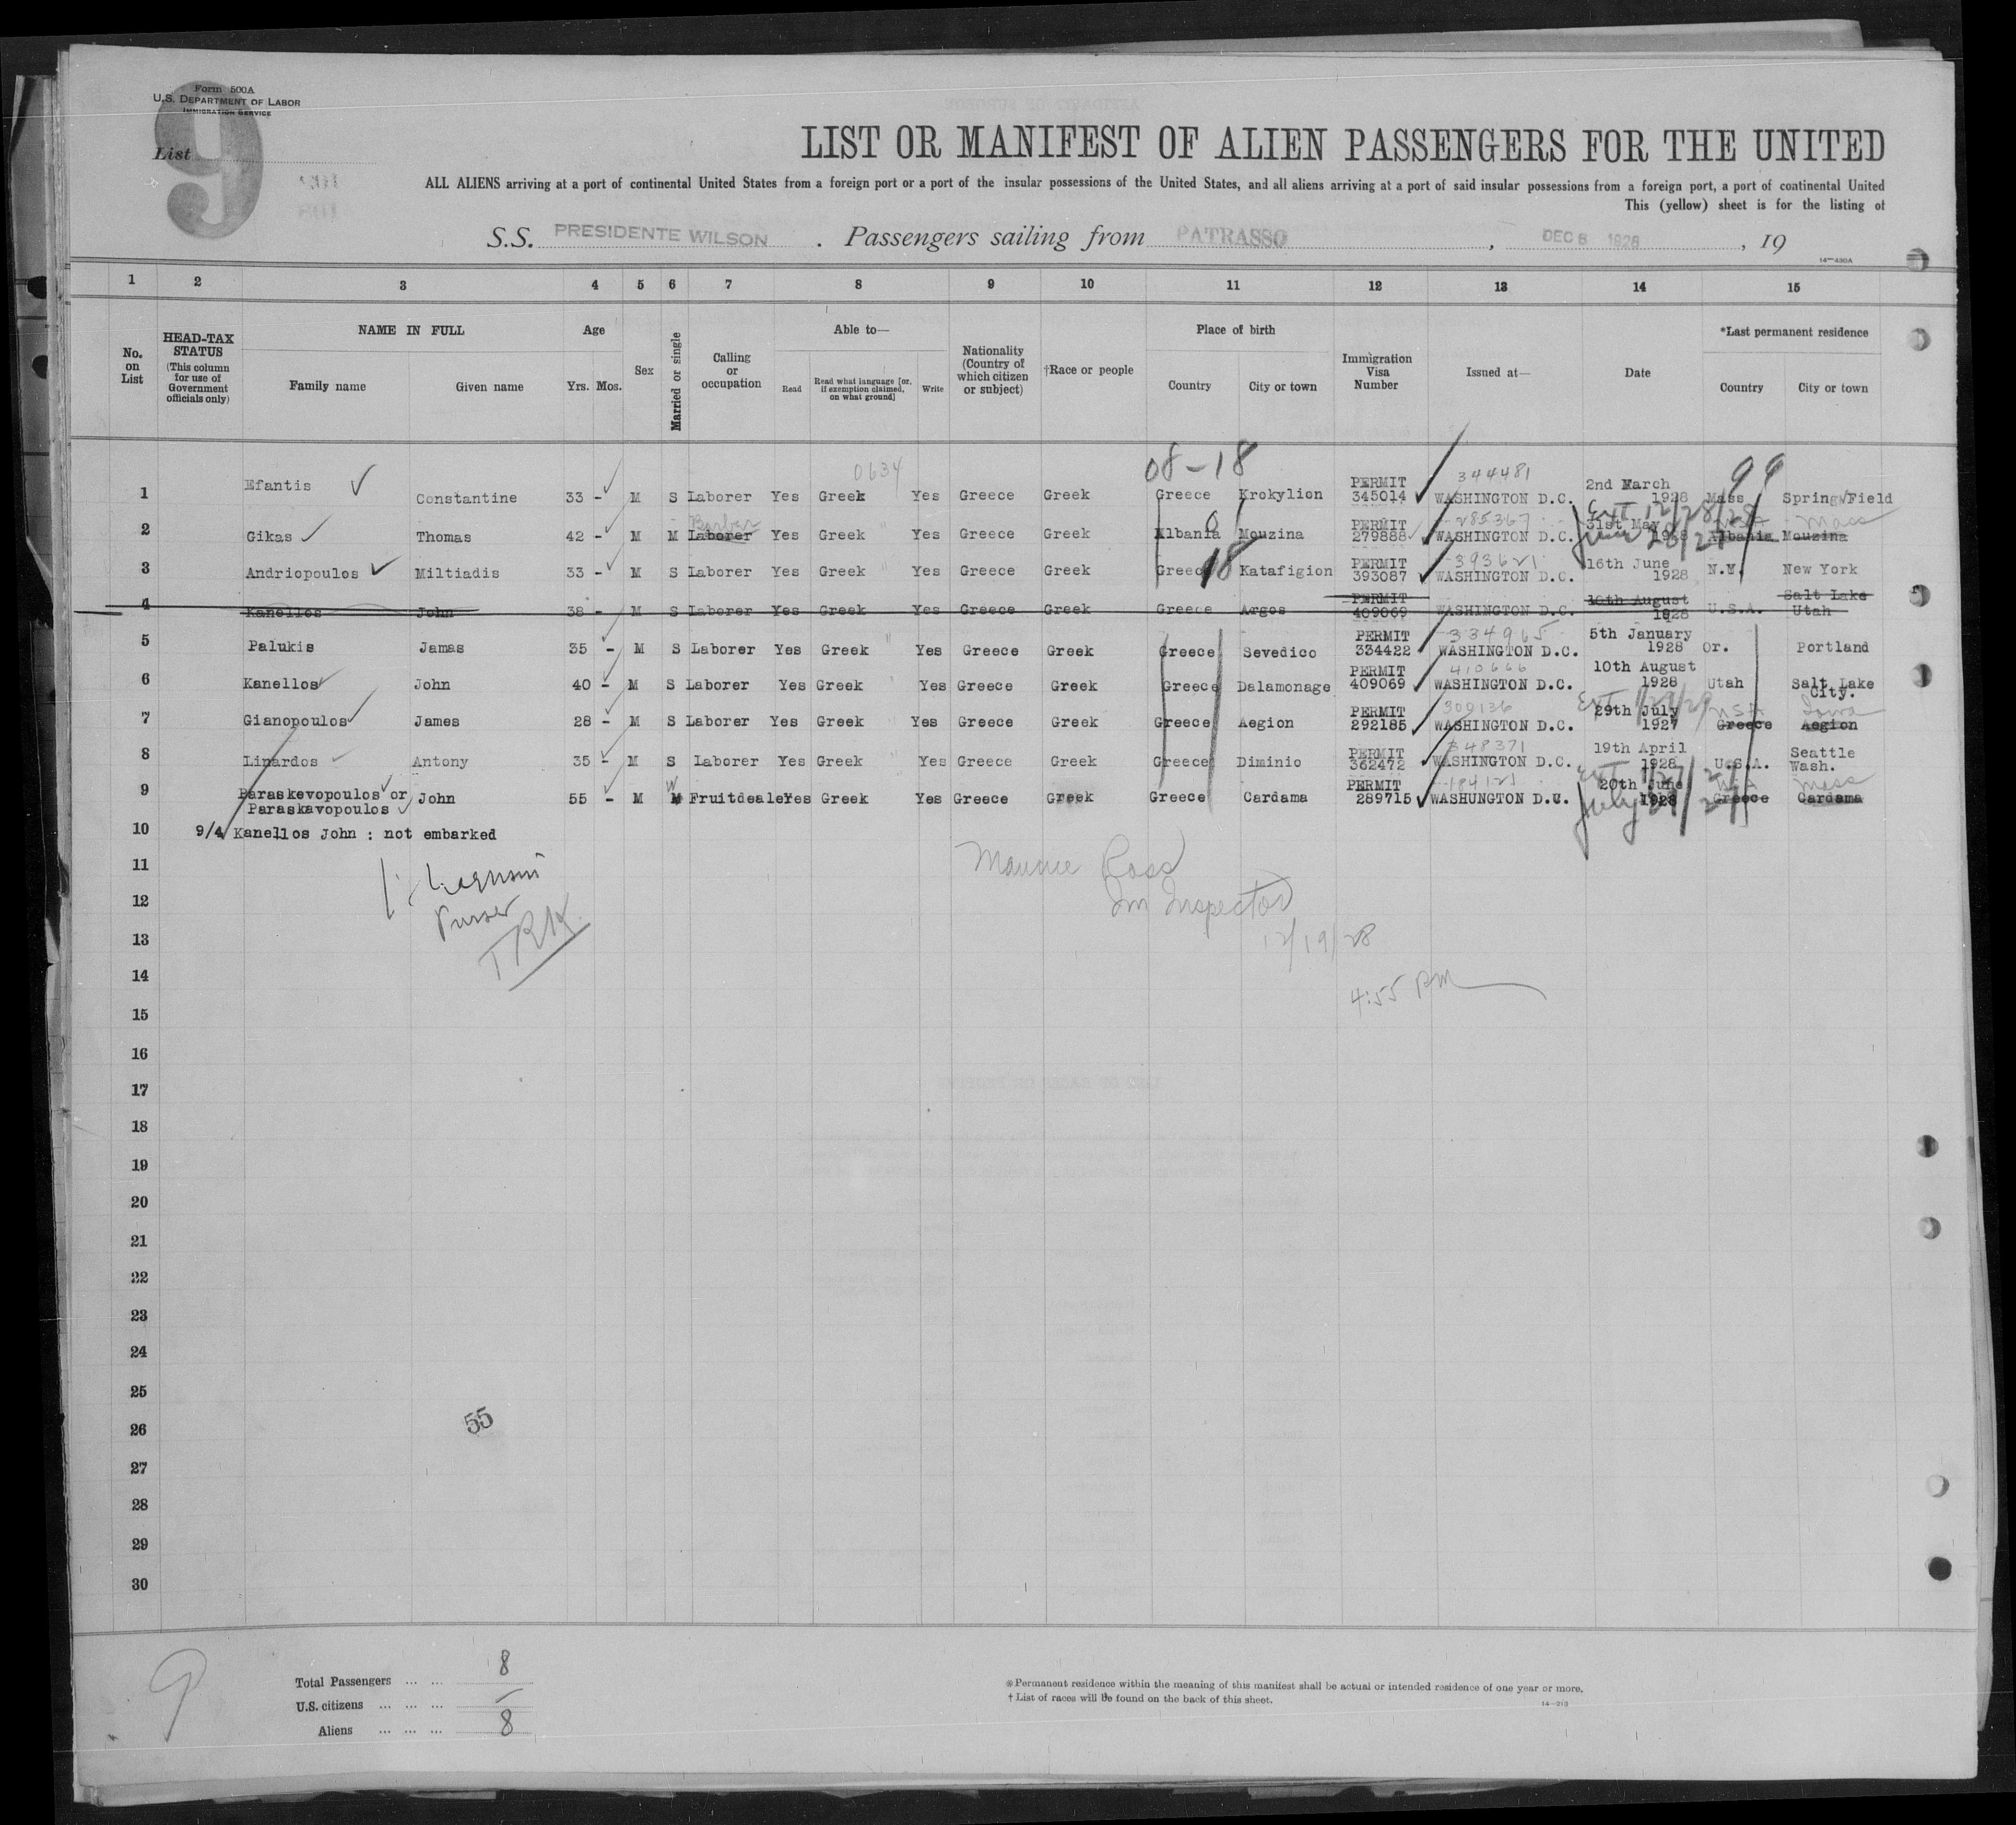 Form 500A
U.S. DEPARTMENT OF LABOR
IMMIGRATION SERVICE
9
List
LIST OR MANIFEST OF ALIEN PASSENGERS FOR THE UNITED
ALL ALIENS arriving at a port of continental United States from a foreign port or a port of the insular possessions of the United States, and all aliens arriving at a port of said insular possessions from a foreign port, a port of continental United
This (yellow) sheet is for the listing of
S.S. PRESIDENTE WILSON . Passengers sailing from PATRASSO , DEC 6 1928 , 19
14—430A
1 2 3 4 5 6 7 8 9 10 11 12 13 14 15
No. on List
HEAD-TAX STATUS (This column for use of Government officials only)
NAME IN FULL
Family name Given name
Age
Yrs. Mos.
Sex
Married or single
Calling or occupation
Able to—
Read Read what language [or, if exemption claimed, on what ground] Write
Nationality (Country of which citizen or subject)
†Race or people
Place of birth
Country City or town
Immigration Visa Number
Issued at—
Date
*Last permanent residence
Country City or town
0634 08-18 344481 99
1 Efantis Constantine 33 - M S Laborer Yes Greek Yes Greece Greek Greece Krokylion PERMIT 345014 WASHINGTON D.C. 2nd March 1928 Mass Spring Field
Barber 0 285367 Ext 12/28/28 USA Mass
2 Gikas Thomas 42 - M M Laborer Yes Greek Yes Greece Greek Albania Mouzina PERMIT 279888 WASHINGTON D.C. 31st May 1928 Albania Mouzina
18 393621
3 Andriopoulos Miltiadis 33 - M S Laborer Yes Greek Yes Greece Greek Greece Katafigion PERMIT 393087 WASHINGTON D.C. 16th June 1928 N.Y. New York
4 Kanellos John 38 - M S Laborer Yes Greek Yes Greece Greek Greece Argos PERMIT 409069 WASHINGTON D.C. 10th August 1928 U.S.A. Salt Lake Utah
334965
5 Palukis Jamas 35 - M S Laborer Yes Greek Yes Greece Greek Greece Sevedico PERMIT 334422 WASHINGTON D.C. 5th January 1928 Or. Portland
410666
6 Kanellos John 40 - M S Laborer Yes Greek Yes Greece Greek Greece Dalamonage PERMIT 409069 WASHINGTON D.C. 10th August 1928 Utah Salt Lake City.
309136 Ext 1/29/29 USA Iowa
7 Gianopoulos James 28 - M S Laborer Yes Greek Yes Greece Greek Greece Aegion PERMIT 292185 WASHINGTON D.C. 29th July 1927 Greece Aegion
348371
8 Linardos Antony 35 - M S Laborer Yes Greek Yes Greece Greek Greece Diminio PERMIT 362472 WASHINGTON D.C. 19th April 1928 U.S.A. Seattle Wash.
W USA Mass
9 Paraskevopoulos or Paraskavopoulos John 55 - M M Fruitdealer Yes Greek Yes Greece Greek Greece Cardama PERMIT 289715 WASHUNGTON D.C. 20th June 1928 Greece Cardama
10 9/4 Kanellos John : not embarked
11
Purser
TRK
Ross
Im Inspector
12/19/28
4:55 PM
12
13
14
15
16
17
18
19
20
21
22
23
24
25
26
27
28
29
30
55
9
Total Passengers ... ... 8
U.S. citizens ... ... ... —
Aliens ... ... ... 8
*Permanent residence within the meaning of this manifest shall be actual or intended residence of one year or more.
†List of races will be found on the back of this sheet.
14—213